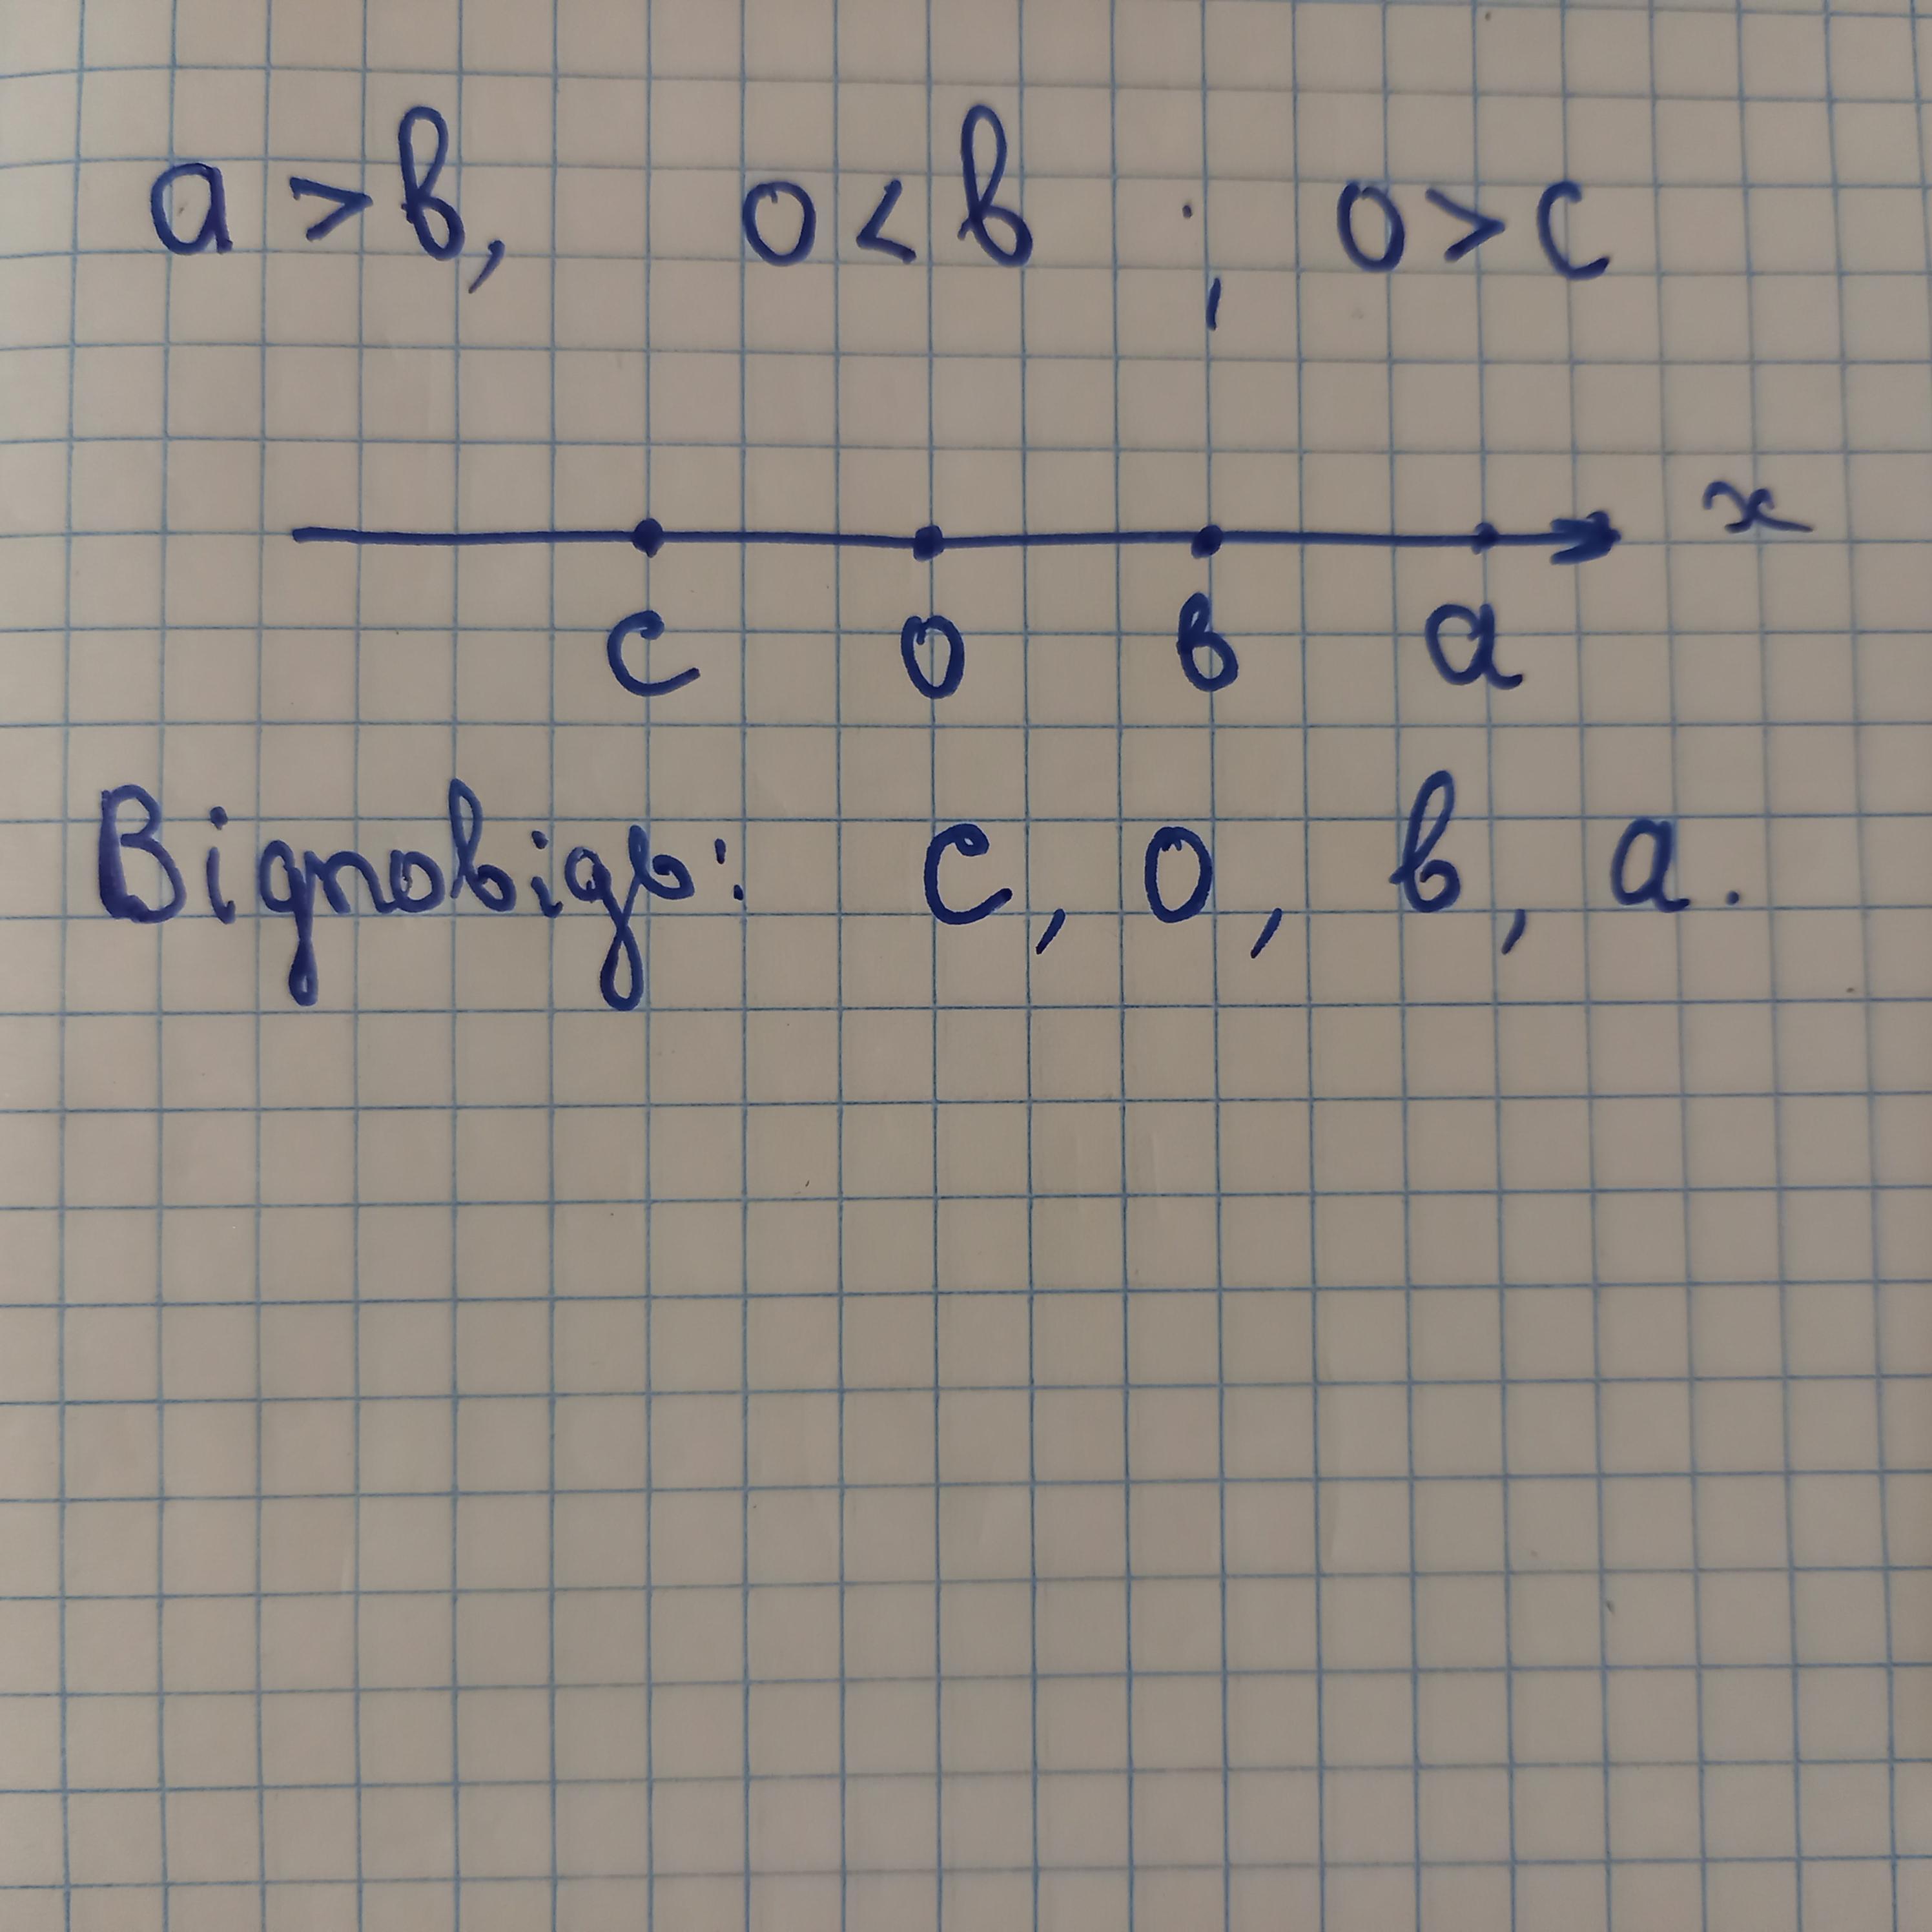 a > b, 0 < b ; 0 > c
x
c 0 b a
Відповідь: c, 0, b, a.